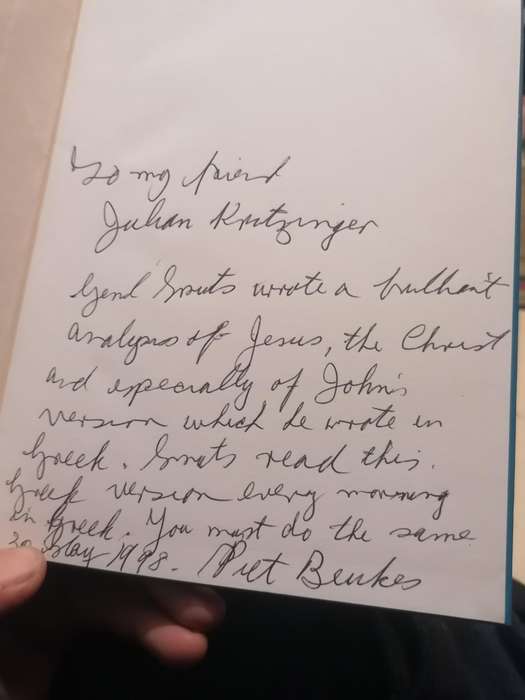 To my friend
Julian Kritzinger
Genl Smuts wrote a brilliant
analysis of Jesus, the Christ
and especially of John's
version which he wrote in
Greek. Smuts read this
Greek version every morning
in Greek. You must do the same
May 1998. Piet Beukes